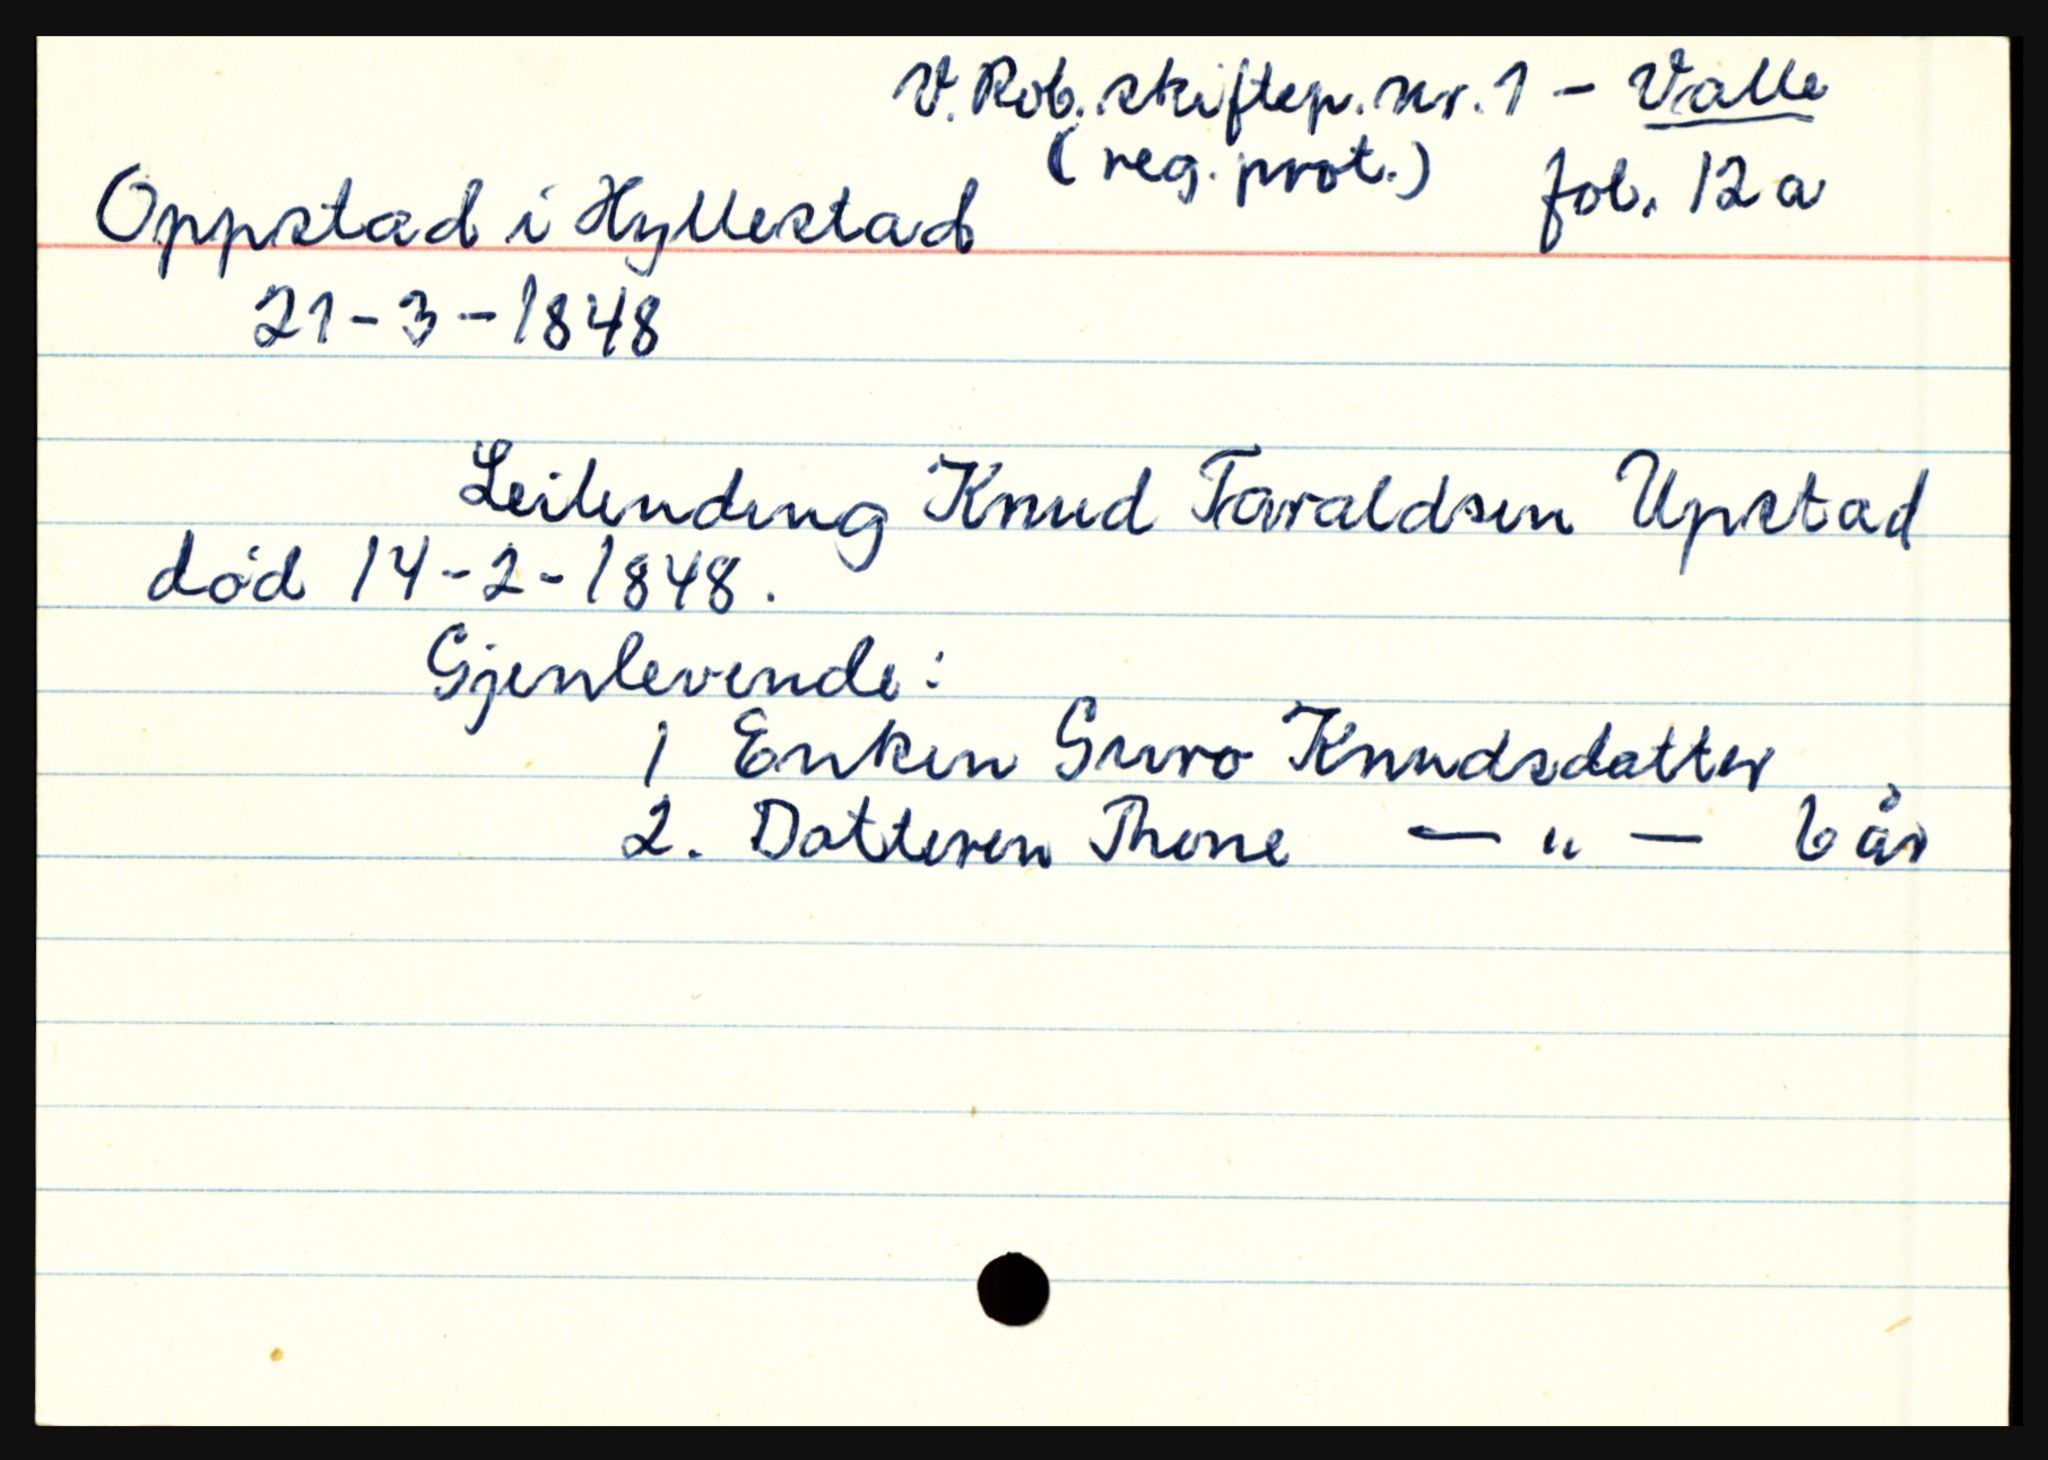 V. Rob. skiftep. nr. 1 - Valle
(reg. prot.) fol. 12a
Oppstad i Hyllestad
21-3-1848
Leilending Knud Taraldsen Upstad
død 14-2-1848.
Gjenlevende:
1 Enken Guro Knudsdatter
2. Datteren Thone — " — 6 år